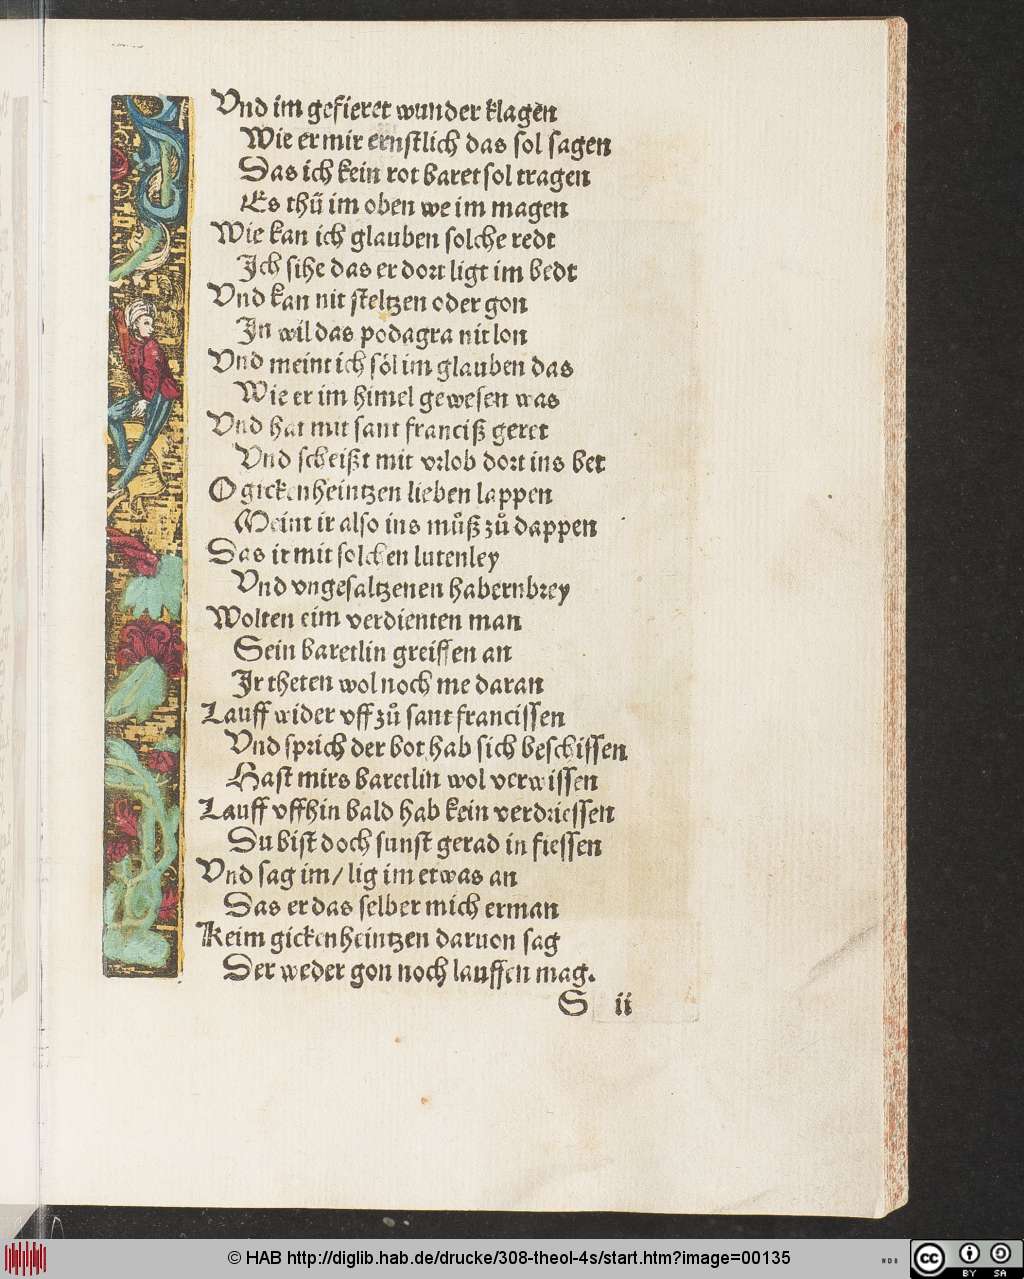 Vnd im gefieret wunder klagen
Wie er mir ernstlich das sol sagen
Das ich kein rot baret sol tragen
Es thü im oben we im magen
Wie kan ich glauben solche redt
Ich sihe das er dort ligt im bedt
Vnd kan nit steltzen oder gon
In wil das podagra nit lon
Vnd meint ich söl im glauben das
Wie er im himel gewesen was
Vnd hat mit sant franciß geret
Vnd scheißt mit vrlob dort ins bet
O gickenheintzen lieben lappen
Meint ir also ins můß zů dappen
Das ir mit solchen lutenley
Vnd vngesaltzenen habernbrey
Wolten eim verdienten man
Sein baretlin greiffen an
Ir theten wol noch me daran
Lauff wider vff zů sant francissen
Vnd sprich der bot hab sich beschissen
Hast mirs baretlin wol verwissen
Lauff vffhin bald hab kein verdriessen
Du bist doch sunst gerad in fiessen
Vnd sag im/ lig im etwas an
Das er das selber mich erman
Keim gickenheintzen daruon sag
Der weder gon noch lauffen mag.
S ii
© HAB http://diglib.hab.de/drucke/308-theol-4s/start.htm?image=00135
cc BY SA